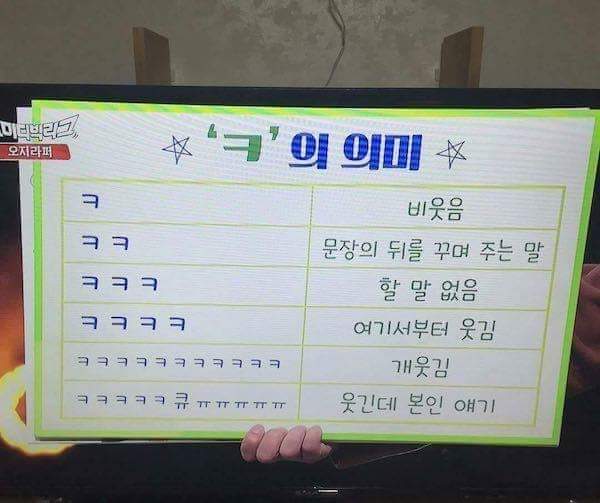 코미디빅리그
오지라퍼
☆ 'ㅋ'의 의미 ☆
ㅋ 비웃음
ㅋㅋ 문장의 뒤를 꾸며 주는 말
ㅋㅋㅋ 할 말 없음
ㅋㅋㅋㅋ 여기서부터 웃김
ㅋㅋㅋㅋㅋㅋㅋㅋㅋㅋㅋ 개웃김
ㅋㅋㅋㅋㅋ큐ㅠㅠㅠㅠㅠ 웃긴데 본인 얘기